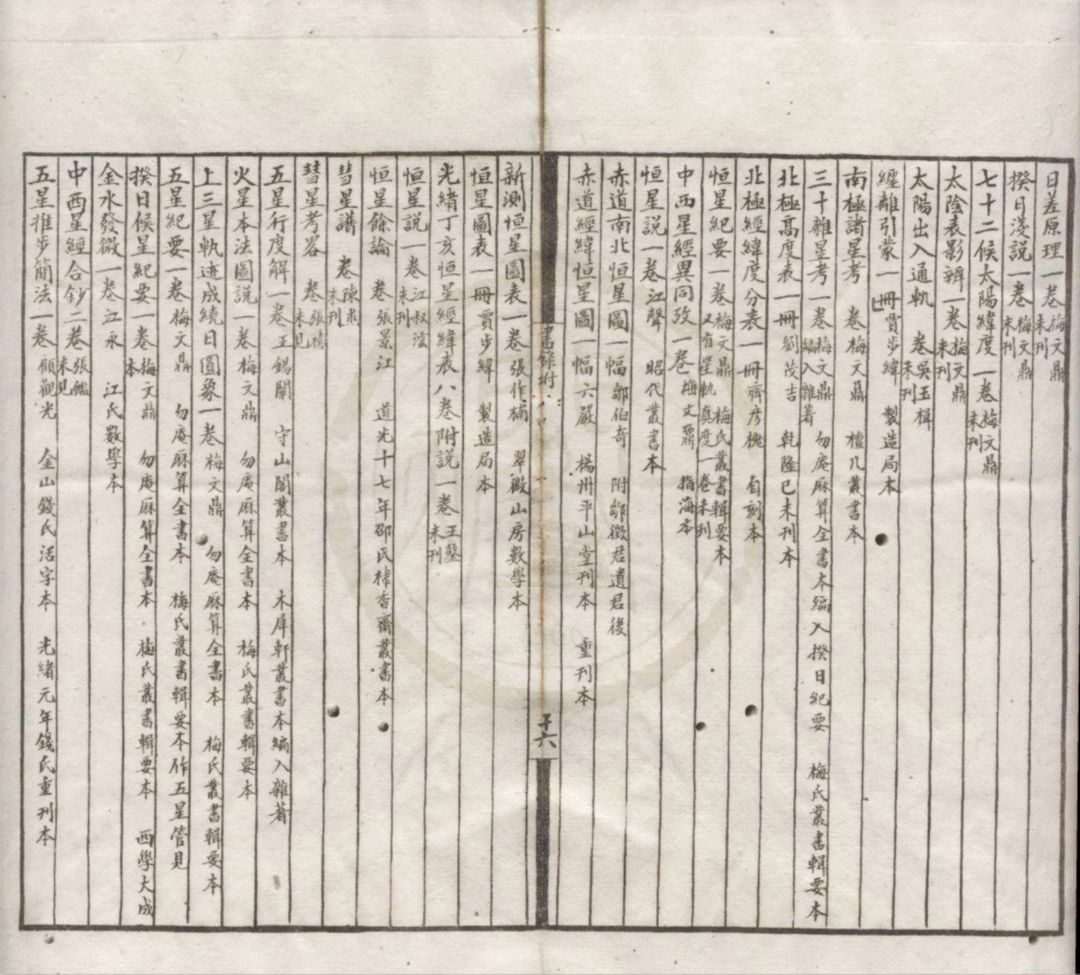 日差原理一卷梅文鼎未刊
揆日淺說一卷梅文鼎未刊
七十二候太陽緯度一卷梅文鼎未刊
太陰表影辨一卷梅文鼎未刊
太陽出入通軌 卷吳玉楫未刊
纏離引蒙一冊賈步緯 製造局本
南極諸星考 卷梅文鼎 檀几叢書本
三十雜星考一卷梅文鼎編入雜著 勿庵厤算全書本編入揆日紀要 梅氏叢書輯要本
北極高度表一冊劉茂吉 乾隆己未刊本
北極經緯度分表一冊齊彥槐 自刻本
恒星紀要一卷梅文鼎又有星軌真度一卷未刊 梅氏叢書輯要本
中西星經異同攷一卷梅文鼐 指海本
恒星說一卷江聲 昭代叢書本
赤道南北恒星圖一幅鄒伯奇 附鄒徵君遺書後
赤道經緯恒星圖一幅六嚴 楊州平山堂刊本 重刊本
書錄附
十六
新測恒星圖表一卷張作楠 翠微山房數學本
恒星圖表一冊賈步緯 製造局本
光緒丁亥恒星經緯表八卷附說一卷王鑒未刊
恒星說一卷江叔澐未刊
恒星餘論 卷張景江 道光十七年邵氏棣香齋叢書本
彗星譜 卷陳未刊
彗星考畧 卷張未見
五星行度解一卷王錫闡 守山閣叢書本 木犀軒叢書本編入雜著
火星本法圖說一卷梅文鼎 勿庵厤算全書本 梅氏叢書輯要本
上三星軌迹成繞日圓象一卷梅文鼎 勿庵厤算全書本 梅氏叢書輯要本
五星紀要一卷梅文鼎 勿庵厤算全書本 梅氏叢書輯要本作五星管見
揆日候星紀要一卷梅文鼎 勿庵厤算全書本 梅氏叢書輯要本 西學大成本
金水發微一卷江永 江氏數學本
中西星經合鈔二卷張鑑未見
五星推步簡法一卷顧觀光 金山錢氏活字本 光緒元年錢氏重刊本